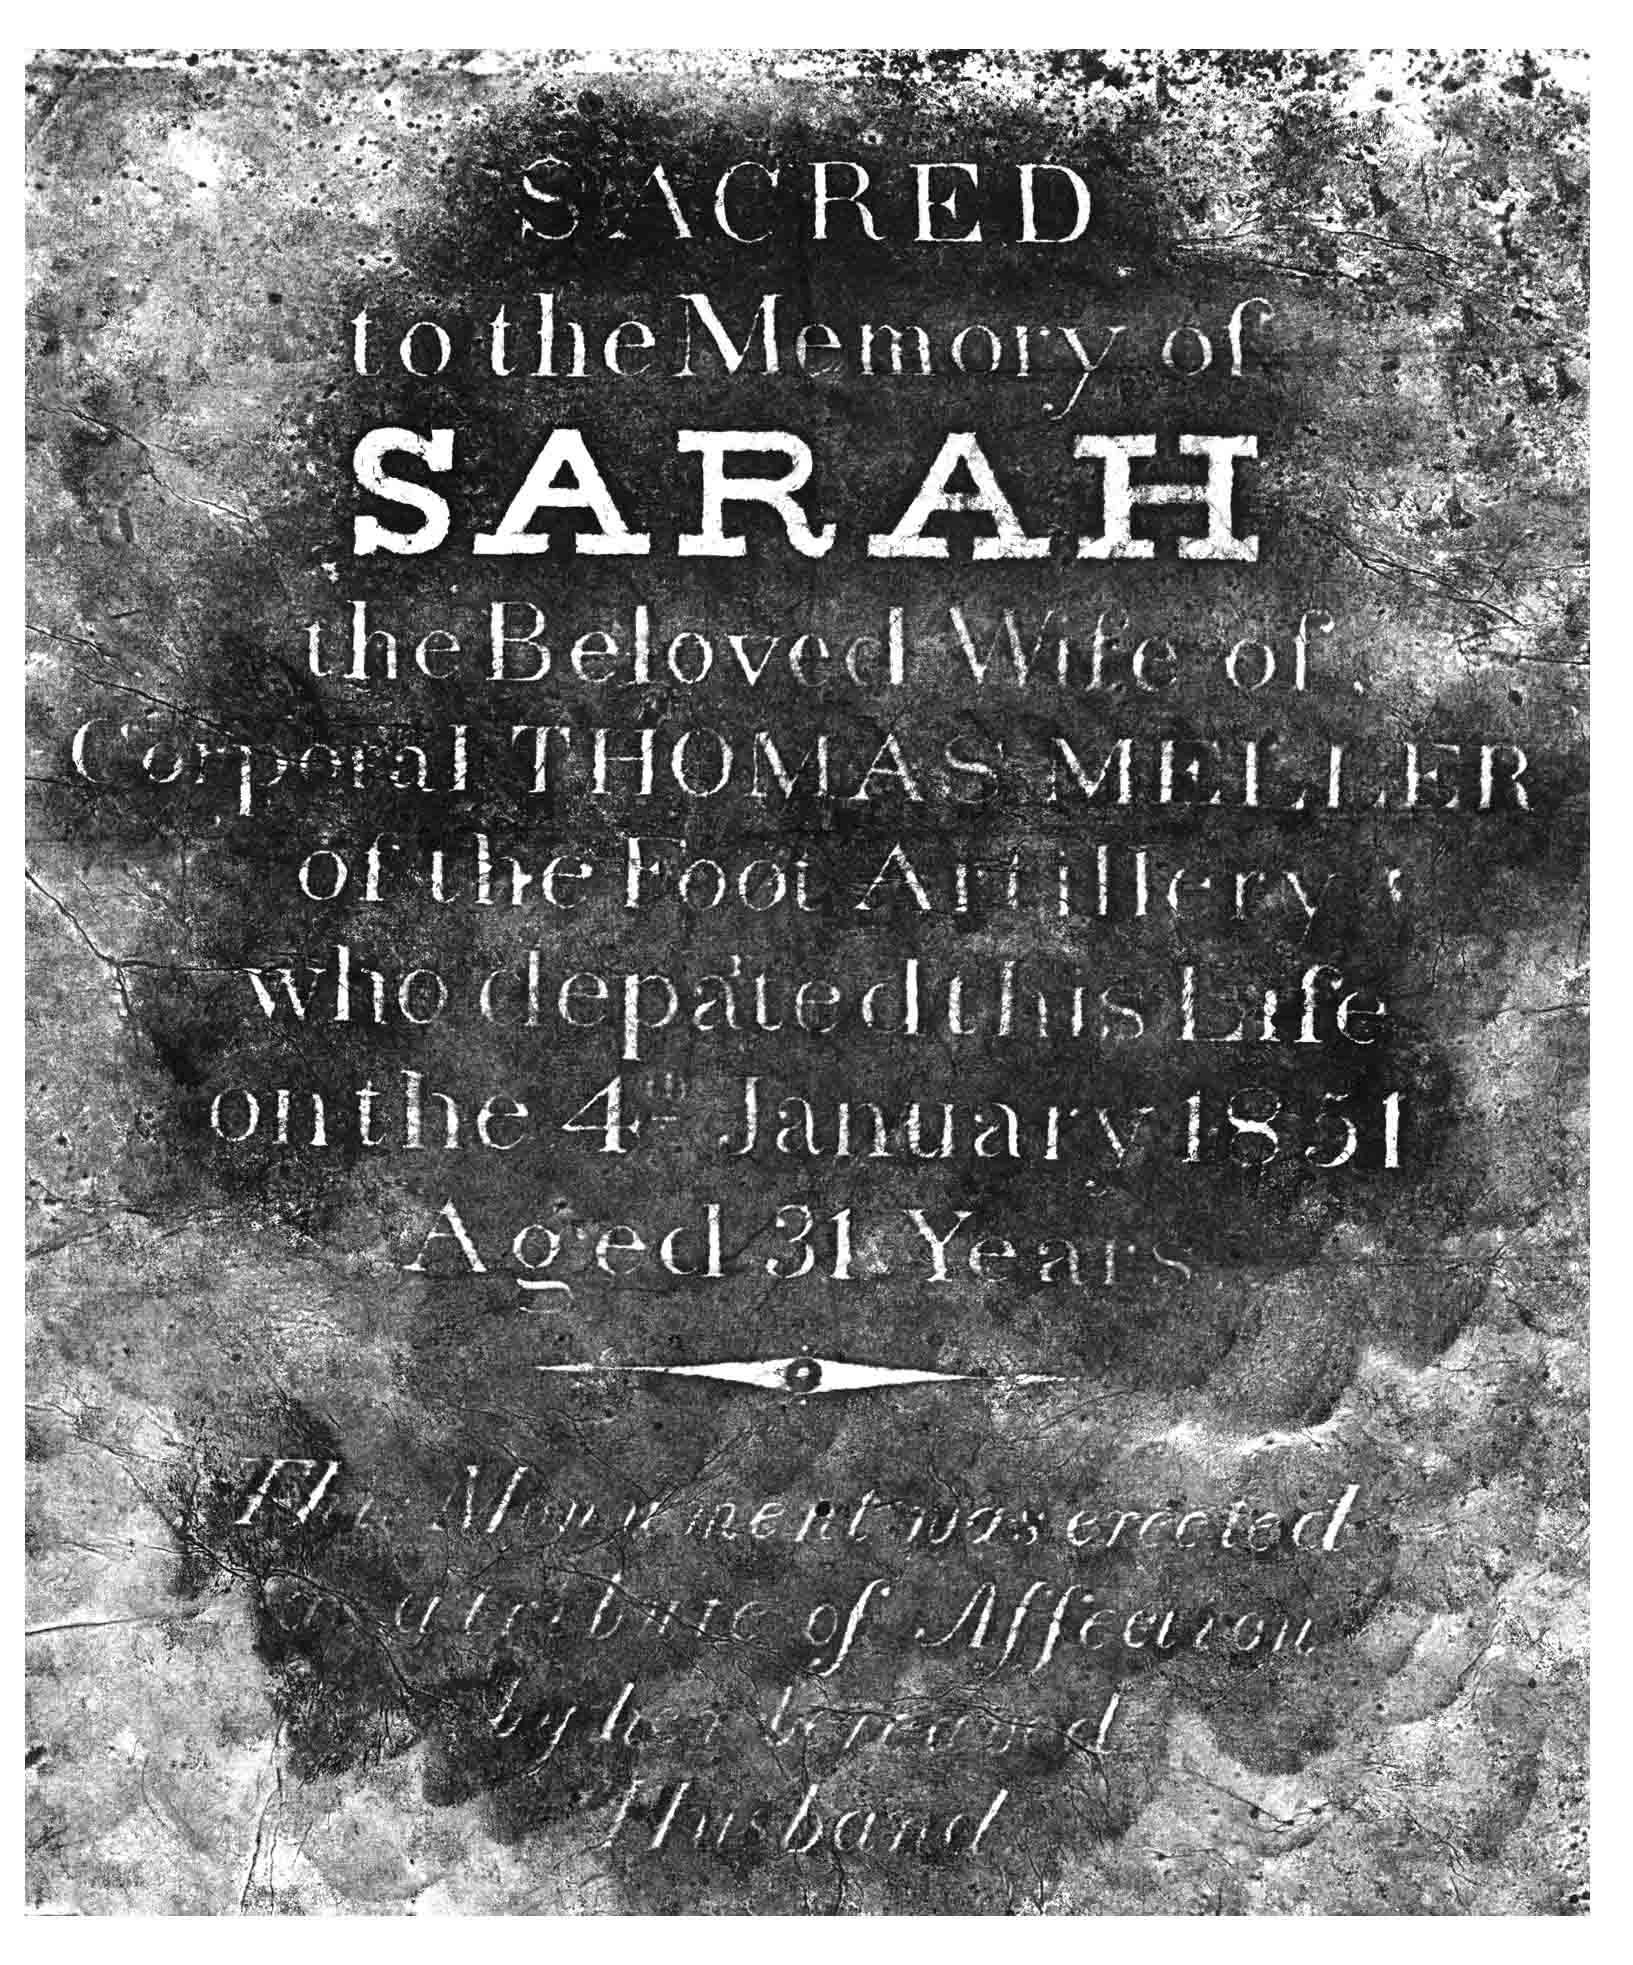 SACRED
to the Memory of
SARAH
the Beloved Wife of
Corporal THOMAS MELLER
of the Foot Artillery
who depa'ted this Life
on the 4th January 1851
Aged 31 Years
Monument was erected
a tribute of Affection
by her
Husband